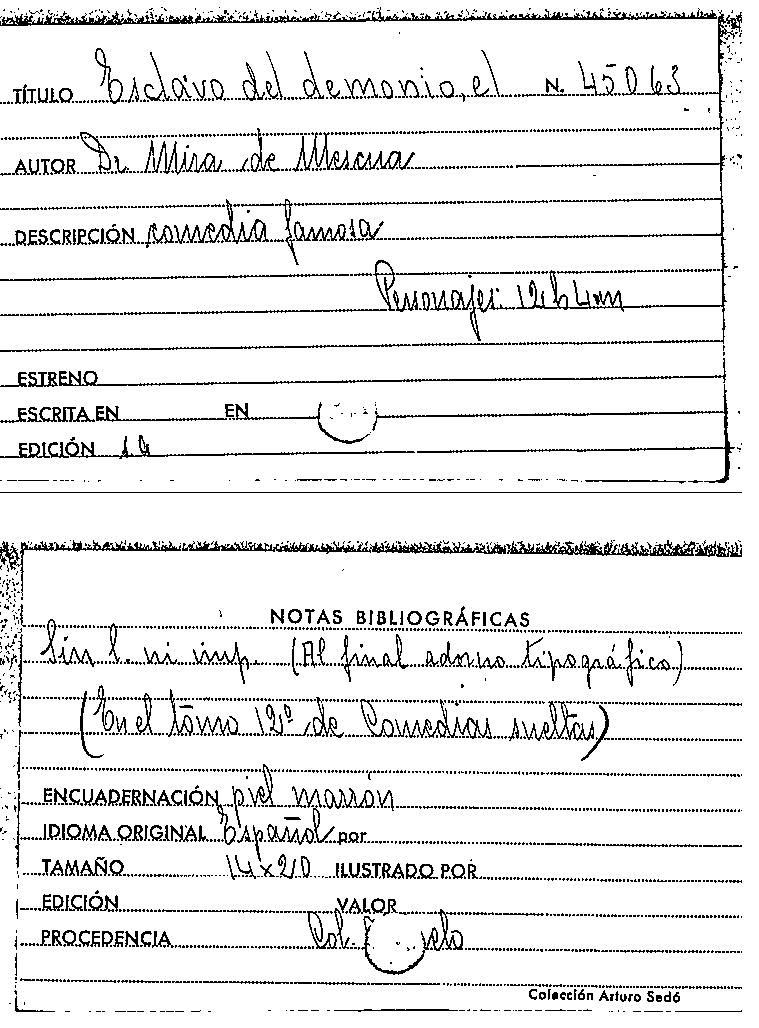 TÍTULO Esclavo del demonio, el N. 45063
AUTOR Dr Mira de Mescua
DESCRIPCIÓN comedia famosa
Personajes: 12 h 4 m
ESTRENO
ESCRITA EN EN
EDICIÓN
NOTAS BIBLIOGRÁFICAS
Sin l. ni imp. (Al final adorno tipográfico)
(En el tomo 12º de Comedias sueltas)
ENCUADERNACIÓN piel marrón
IDIOMA ORIGINAL Español por
TAMAÑO 14x20 ILUSTRADO POR
EDICIÓN VALOR
PROCEDENCIA Col.
Colección Arturo Sedó